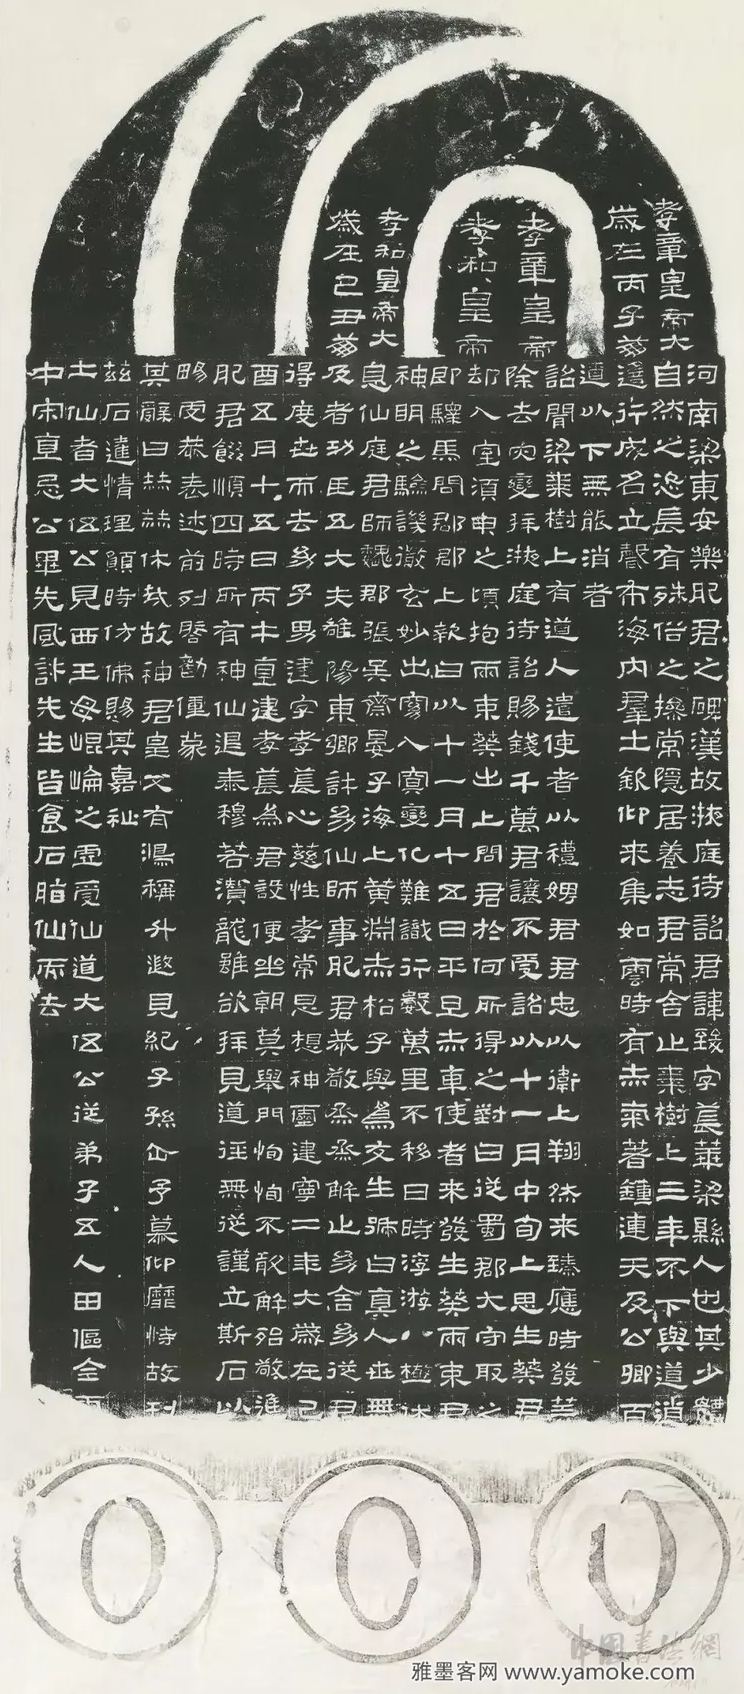 孝章皇帝
孝和皇帝
孝章皇帝大
歲在丙子崩
孝和皇帝大
歲在己丑崩
河南梁東安樂肥君之碑漢故掖庭待詔君諱致字萇華梁縣人也其少體
自然之恣長有殊俗之操常隱居養志君常舍止棗樹上三年不下與道逍
遙行成名立聲布海內羣士欽仰來集如雲時有赤氣著鍾連天及公卿百
遼以下無能消者
詔聞梁棗樹上有道人遣使者以禮娉君君忠以衛上翔然來臻應時發算
除去災變拜掖庭待詔賜錢千萬君讓不受詔以十一月中旬上思生葵君
却入室須臾之頃抱兩束葵出上問君於何所得之對曰從蜀郡大守取之
即驛馬問郡郡上報曰以十一月十五日平旦赤車使者來發生葵兩束君
神明之驗譏徹玄妙出窈入冥變化難識行數萬里不移日時浮游八極休
息仙庭君師魏郡張吳齋晏子海上黃淵赤松子與為友生號曰真人世無
及者功臣五大夫雒陽東鄉許幼仙師事肥君恭敬烝烝解止幼舍幼從君
得度世而去幼子男建字孝萇心慈性孝常思想神靈建寧二年大歲在己
酉五月十五日丙午直建孝萇為君設便坐朝莫舉門恂恂不敢解殆敬進
肥君餟順四時所有神仙退泰穆若潛龍雖欲拜見道徑無從謹立斯石以
暢虔恭表述前列啓勸僮蒙
其辭曰赫赫休哉故神君皇又有鴻稱升遐見紀子孫企予慕仰靡恃故刊
茲石達情理願時仿佛賜其嘉祉
土仙者大伍公見西王母崐崘之虛受仙道大伍公從弟子五人田傴全
中宋直忌公畢先風許先生皆食石脂仙而去
中国书法網
雅墨客网 www.yamoke.com